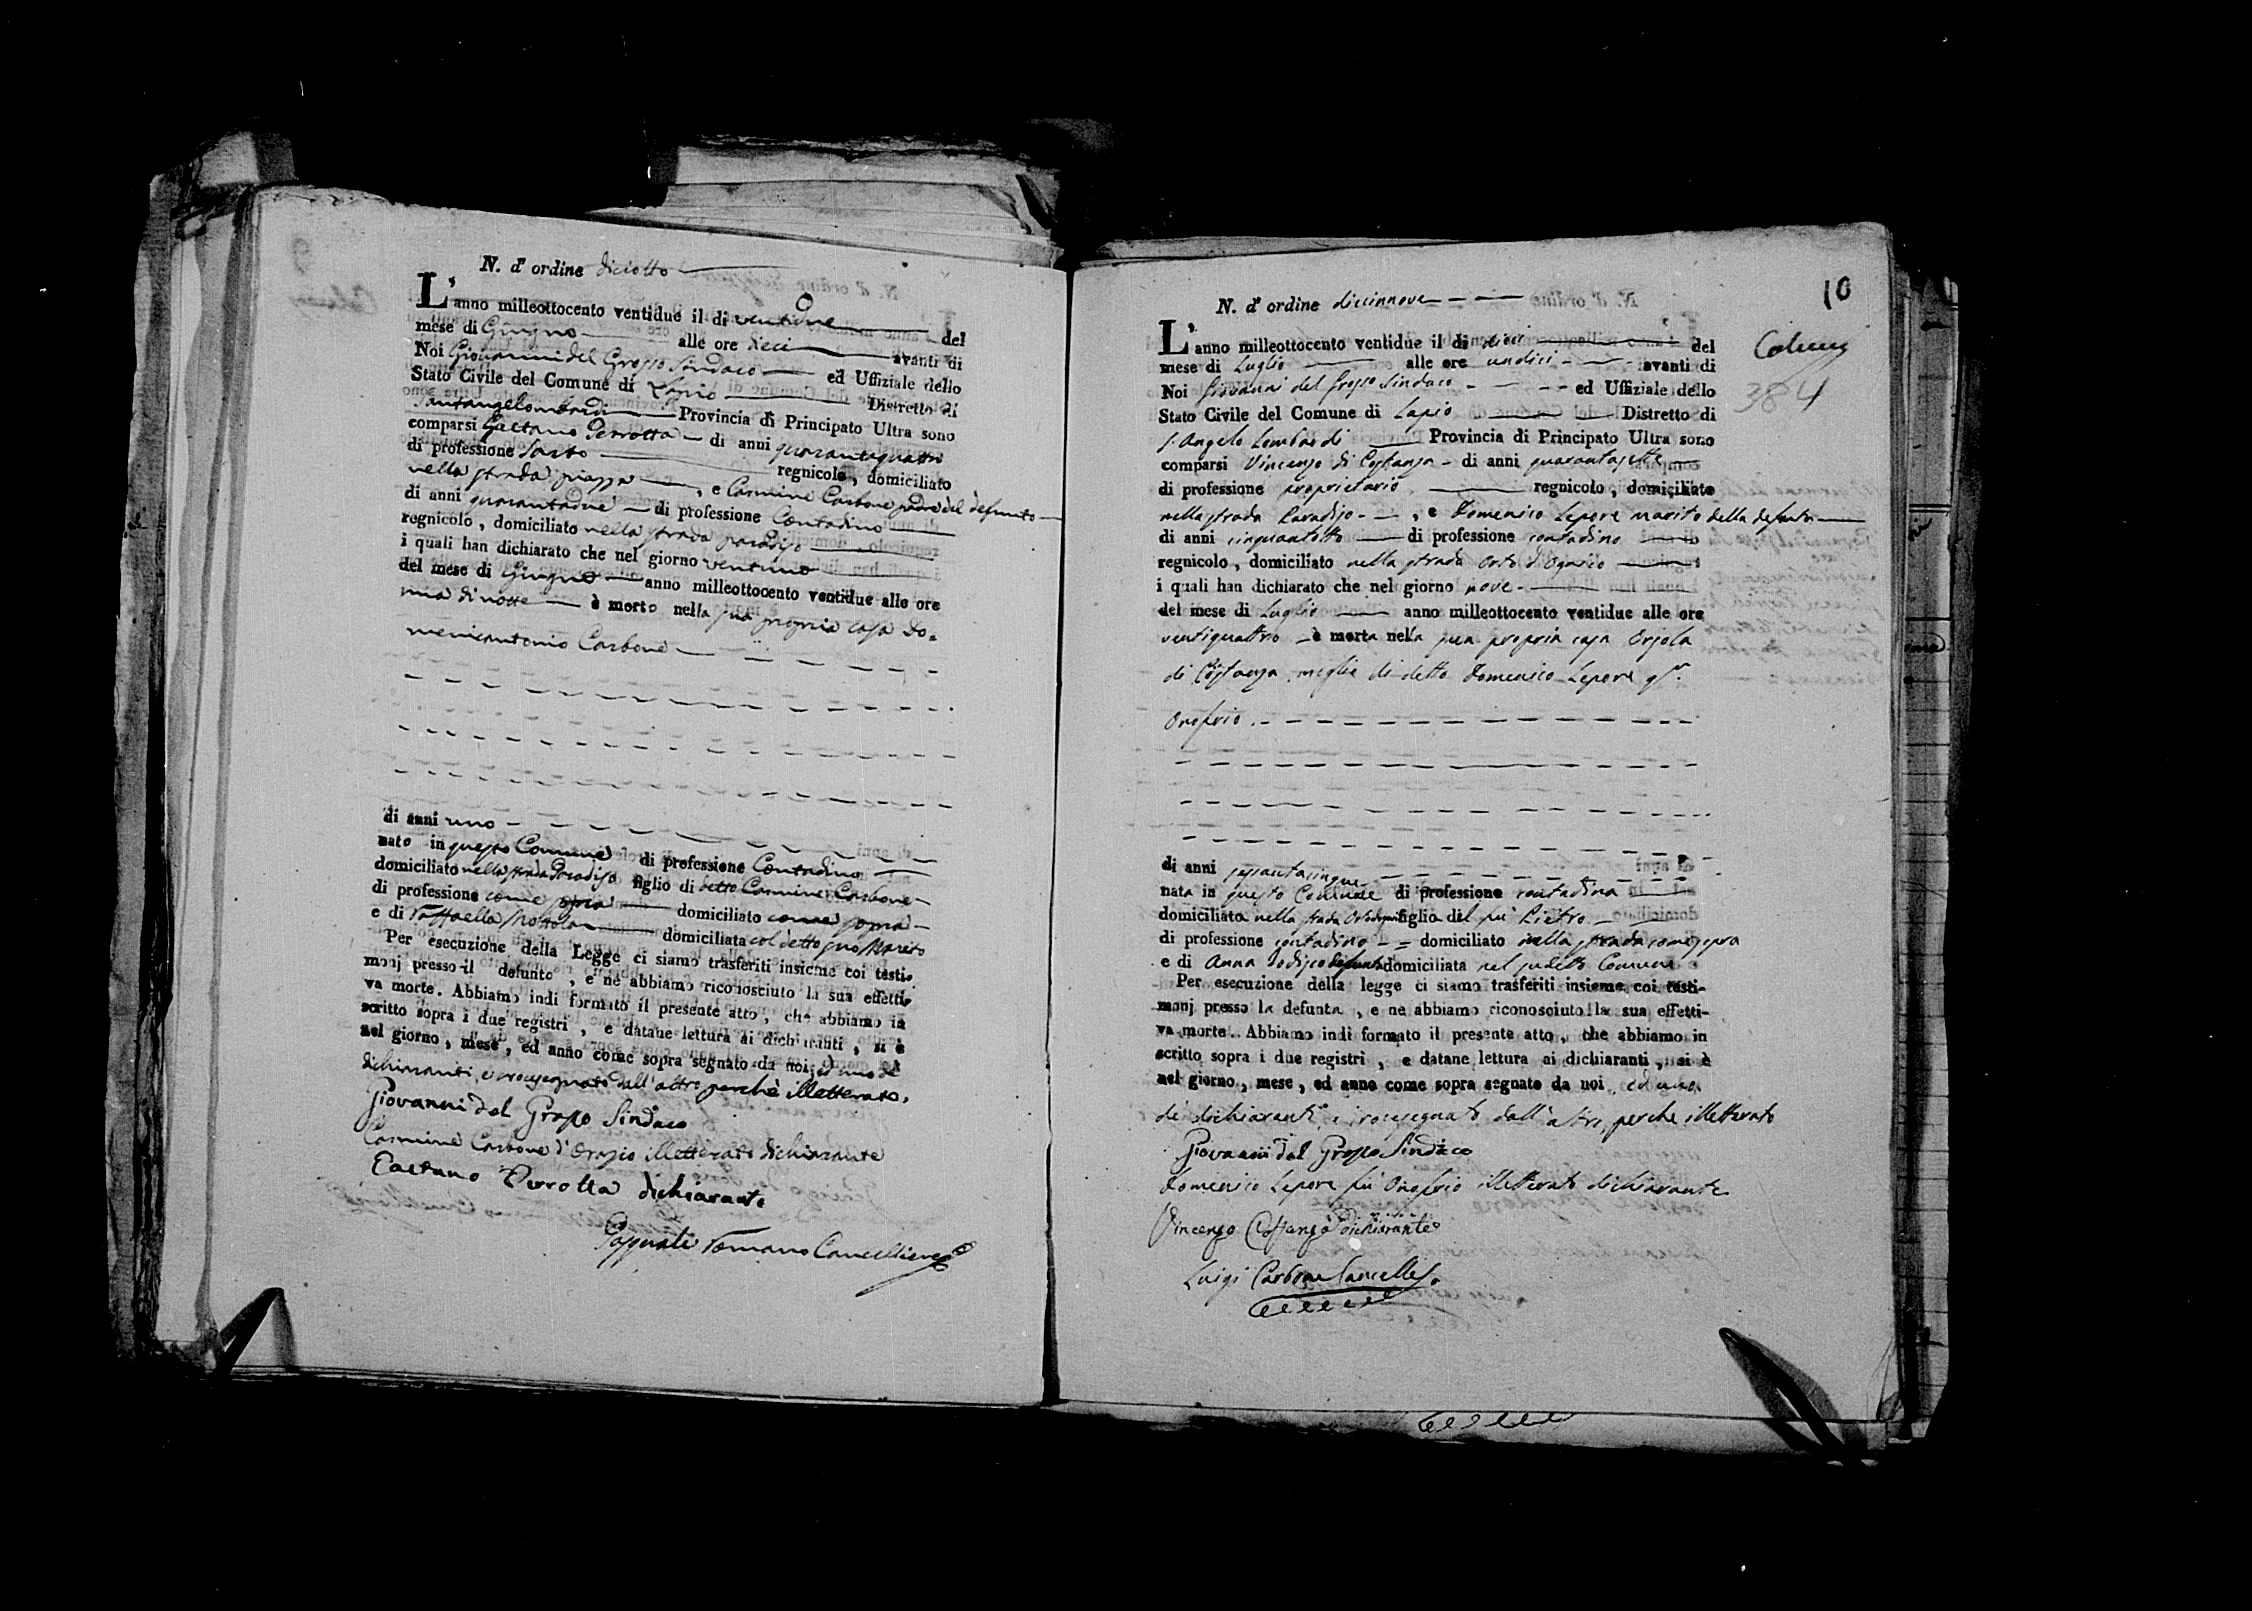 N. d'ordine diciotto
L'anno milleottocento ventidue il di ventidue del
mese di Giugno alle ore dieci avanti di
Noi Giovanni del Grosso Sindaco ed Uffiziale dello
Stato Civile del Comune di Lapio Distretto di
Santangelombardi Provincia di Principato Ultra sono
comparsi Gaetano Perrotta di anni quarantaquattro
di professione Sarto regnicolo, domiciliato
nella strada piazza, e Carmine Carbone padre del defunto
di anni quarantadue di professione Contadino
regnicolo, domiciliato nella strada paradiso
i quali han dichiarato che nel giorno ventuno
del mese di Giugno anno milleottocento ventidue alle ore
una di notte è morto nella sua propria casa Do=
menicantonio Carbone
di anni uno
nato in questo Comune di professione Contadino
domiciliato nella strada Paradiso figlio di detto Carmine Carbone
di professione come sopra domiciliato come sopra
e di Raffaella domiciliata col detto suo Marito
Per esecuzione della Legge ci siamo trasferiti insieme coi testi-
monj presso il defunto, e ne abbiamo riconosciuto la sua effetti-
va morte. Abbiamo indi formato il presente atto, che abbiamo in
scritto sopra i due registri, e datane lettura ai dichiaranti, si è
nel giorno, mese, ed anno come sopra segnato da noi, ed uno de
dichiaranti, e crocesegnato dall'altro perchè illetterato.
Giovanni del Grosso Sindaco
Carmine Carbone d'Orazio illetterato dichiarante
Gaetano Perrotta dichiarante
Pasquale Romano Cancelliere
10
384
N. d'ordine diecinnove
L'anno milleottocento ventidue il di dieci del
mese di Luglio alle ore undici avanti di
Noi Giovanni del Grosso Sindaco ed Uffiziale dello
Stato Civile del Comune di Lapio Distretto di
S. Angelo Lombardi Provincia di Principato Ultra sono
comparsi Vincenzo di Costanza di anni quarantasette
di professione proprietario regnicolo, domiciliato
nella strada Paradiso, e Domenico Lepore marito della defunta
di anni cinquantotto di professione contadino
regnicolo, domiciliato nella strada Orto d'Ognisio
i quali han dichiarato che nel giorno nove
del mese di Luglio anno milleottocento ventidue alle ore
ventiquattro è morta nella sua propria casa Orsola
di Costanza moglie di detto Domenico Lepore qm.
Onofrio
di anni sessantacinque
nata in questo Comune di professione contadina
domiciliata nella strada figlia del fù Pietro
di professione contadino domiciliato nella strada come sopra
e di Anna defunta domiciliata nel sudetto Comune
Per esecuzione della legge ci siamo trasferiti insieme coi testi-
monj presso la defunta, e ne abbiamo riconosciuto la sua effetti-
va morte. Abbiamo indi formato il presente atto, che abbiamo in
scritto sopra i due registri, e datane lettura ai dichiaranti, si è
nel giorno, mese, ed anno come sopra segnato da noi, ed uno
de dichiaranti, e crocesegnato dall'altro perche illetterato
Giovanni del Grosso Sindaco
Domenico Lepore fù Onofrio illetterato dichiarante
Vincenzo Costanza dichiarante
Luigi Carbone Cancelle.